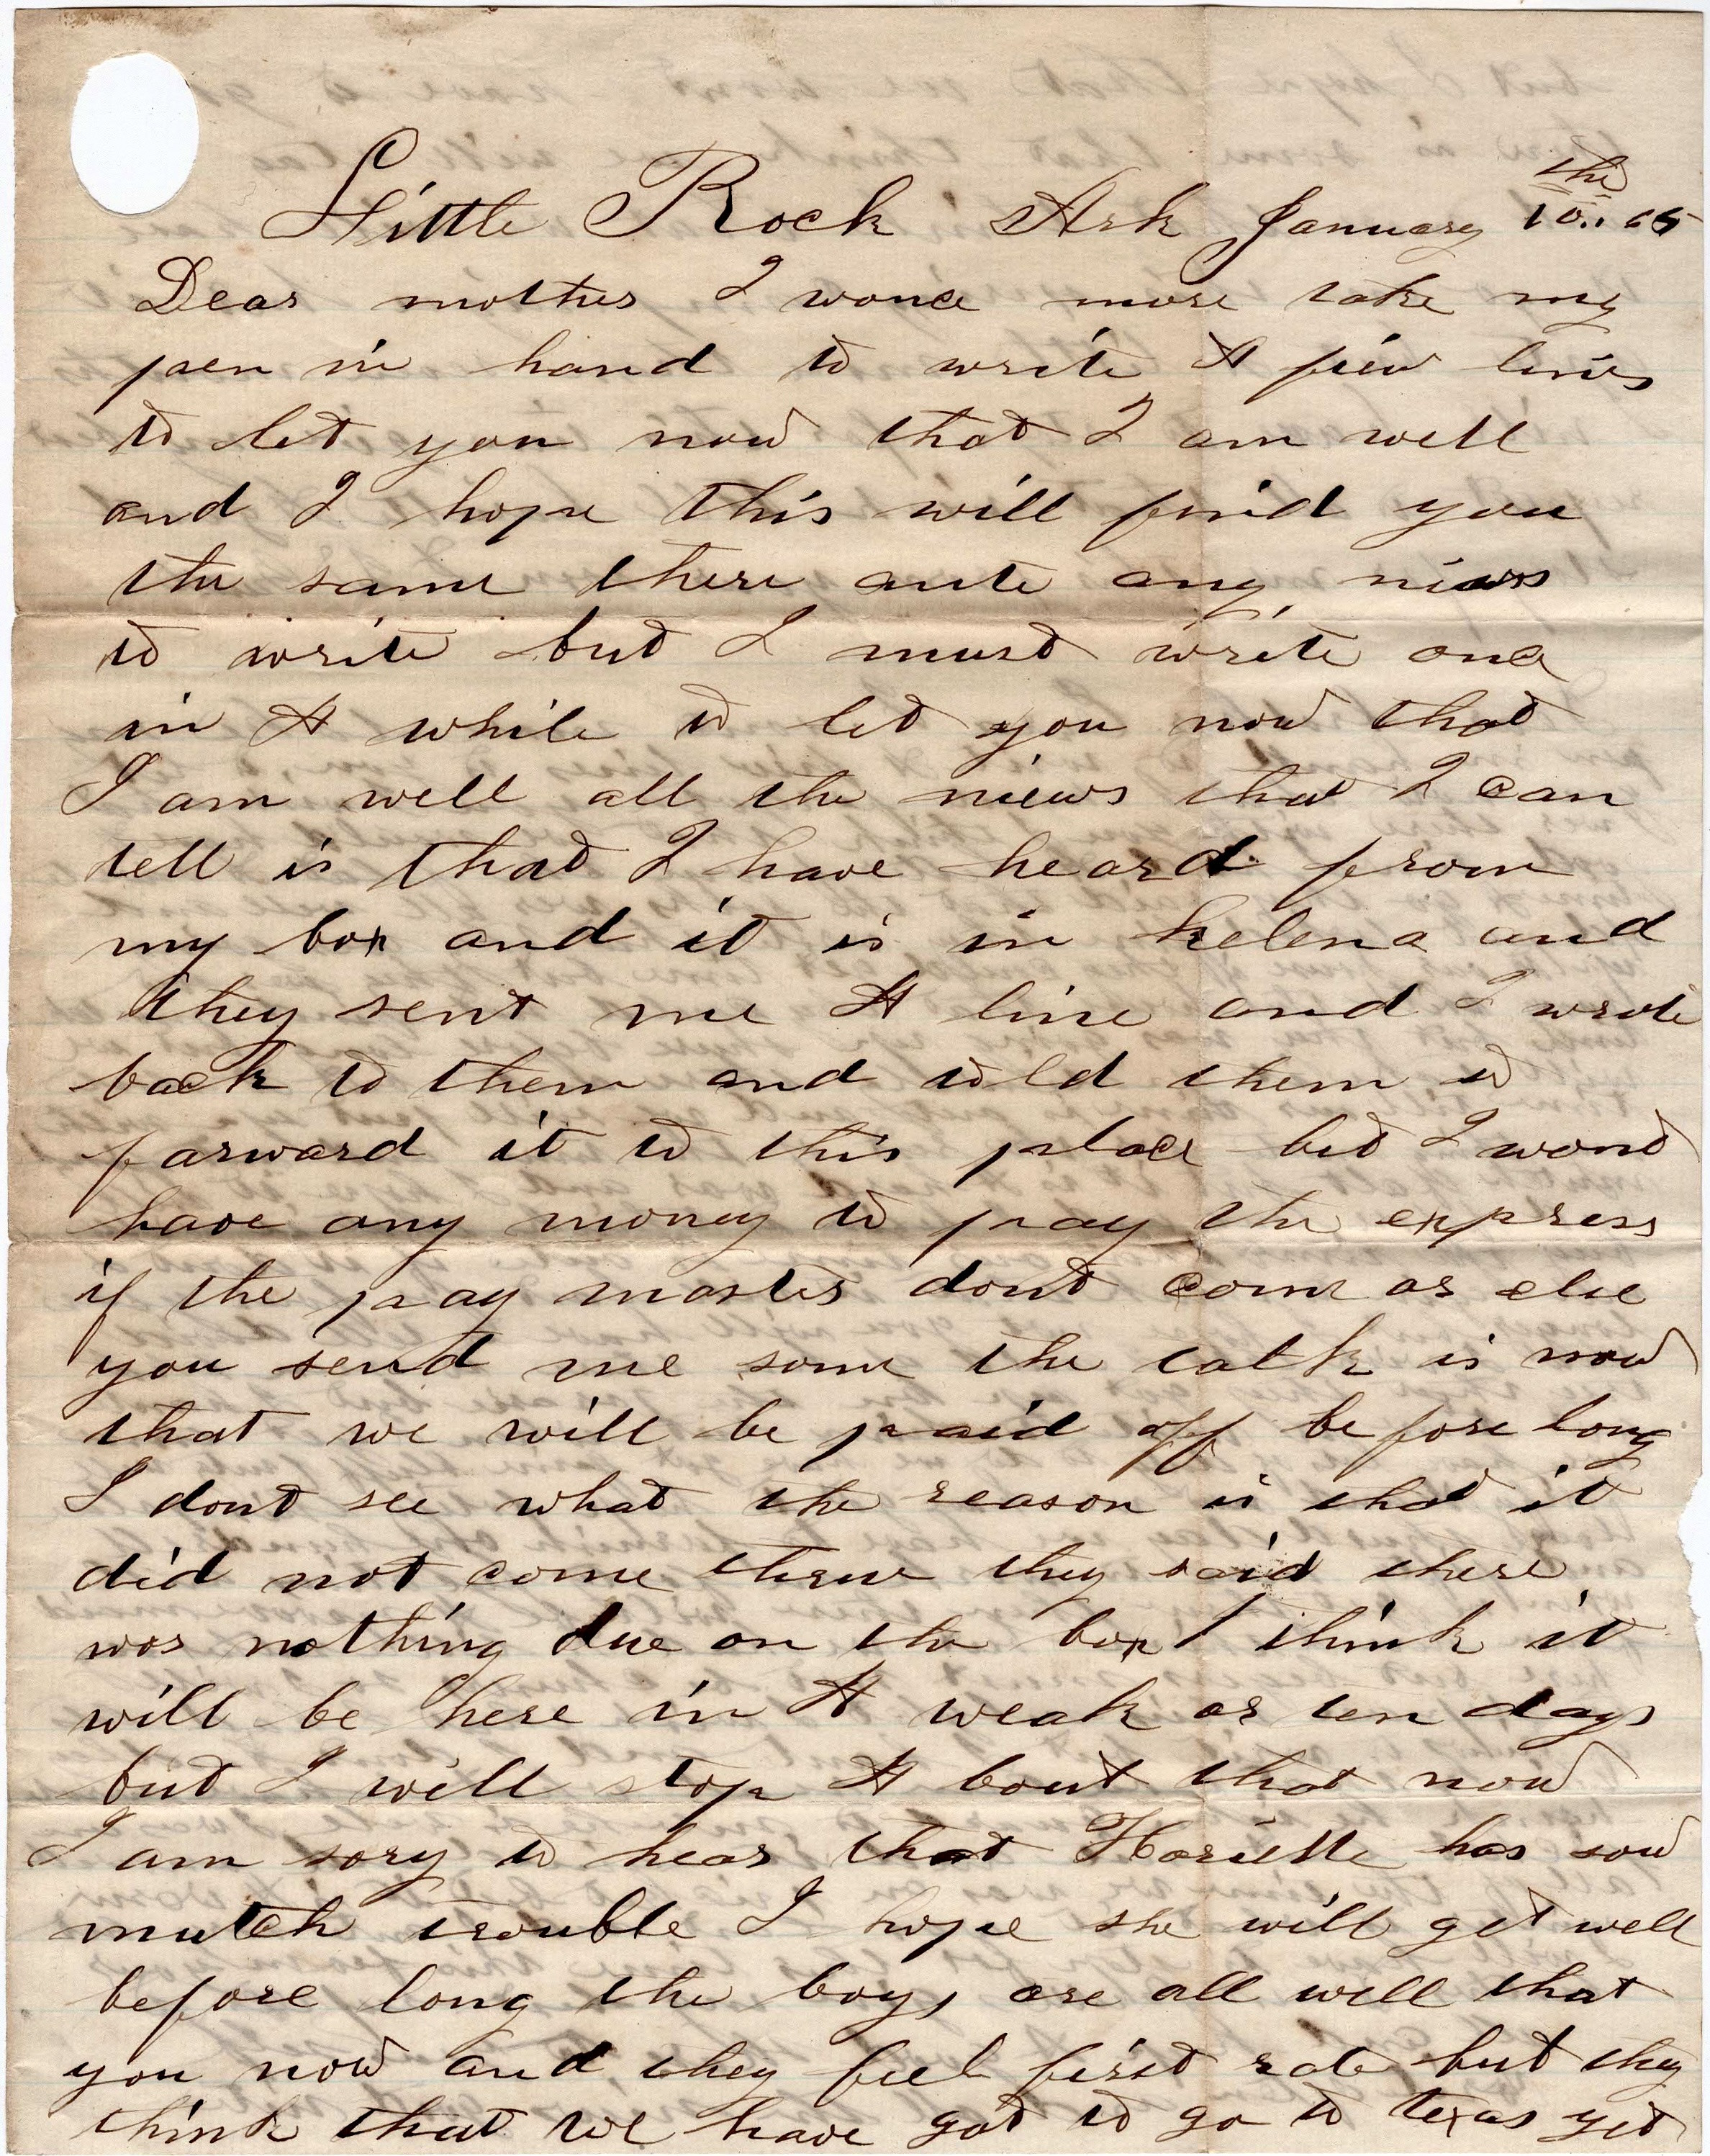 Little Rock Ark January 10th 65
Dear mother I wonce more take my
pen in hand to write A fiew lines
to let you now that I am well
and I hope this will find you
the same there ante any niews
to write but I must write once
in A while to let you now that
I am well all the niews that I can
tell is that I have heard from
my box and it is in helena and
they sent me A line and I wrote
back to them and told them to
farward it to this place but I wont
have any money to pay the express
if the pay master dont come or else
you send me some the talk is now
that we will be paid off before long
I dont see what the reason is that it
did not come threw they said there
was nothing due on the box I think it
will be here in A weak or ten days
but I will stop A bout that now
I am sory to hear that Hariette has sow
mutch trouble I hope she will get well
before long the boys are all well that
you now and they feel first rate but they
think that we have got to go to texas yet